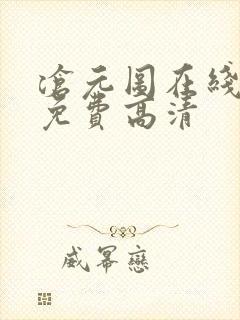 滄元圖在綫
免費高清
威冪戀